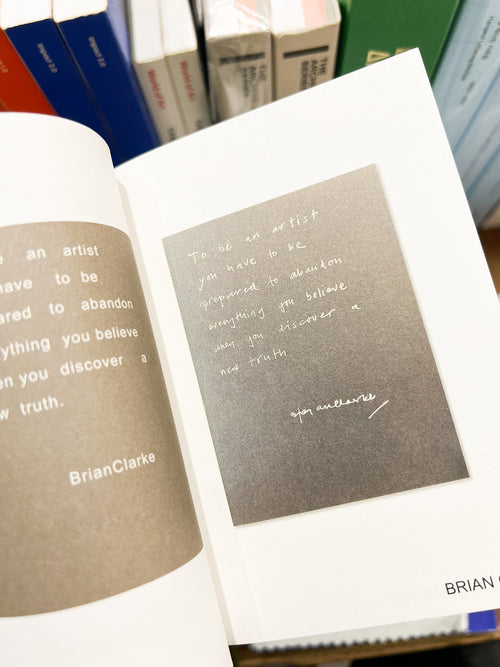 World of Art
World of Art
THE
THE
e an artist
have to be
ared to abandon
ything you believe
en you discover a
w truth.
BrianClarke
To be an artist
you have to be
prepared to abandon
everything you believe
when you discover a
new truth
BRIAN